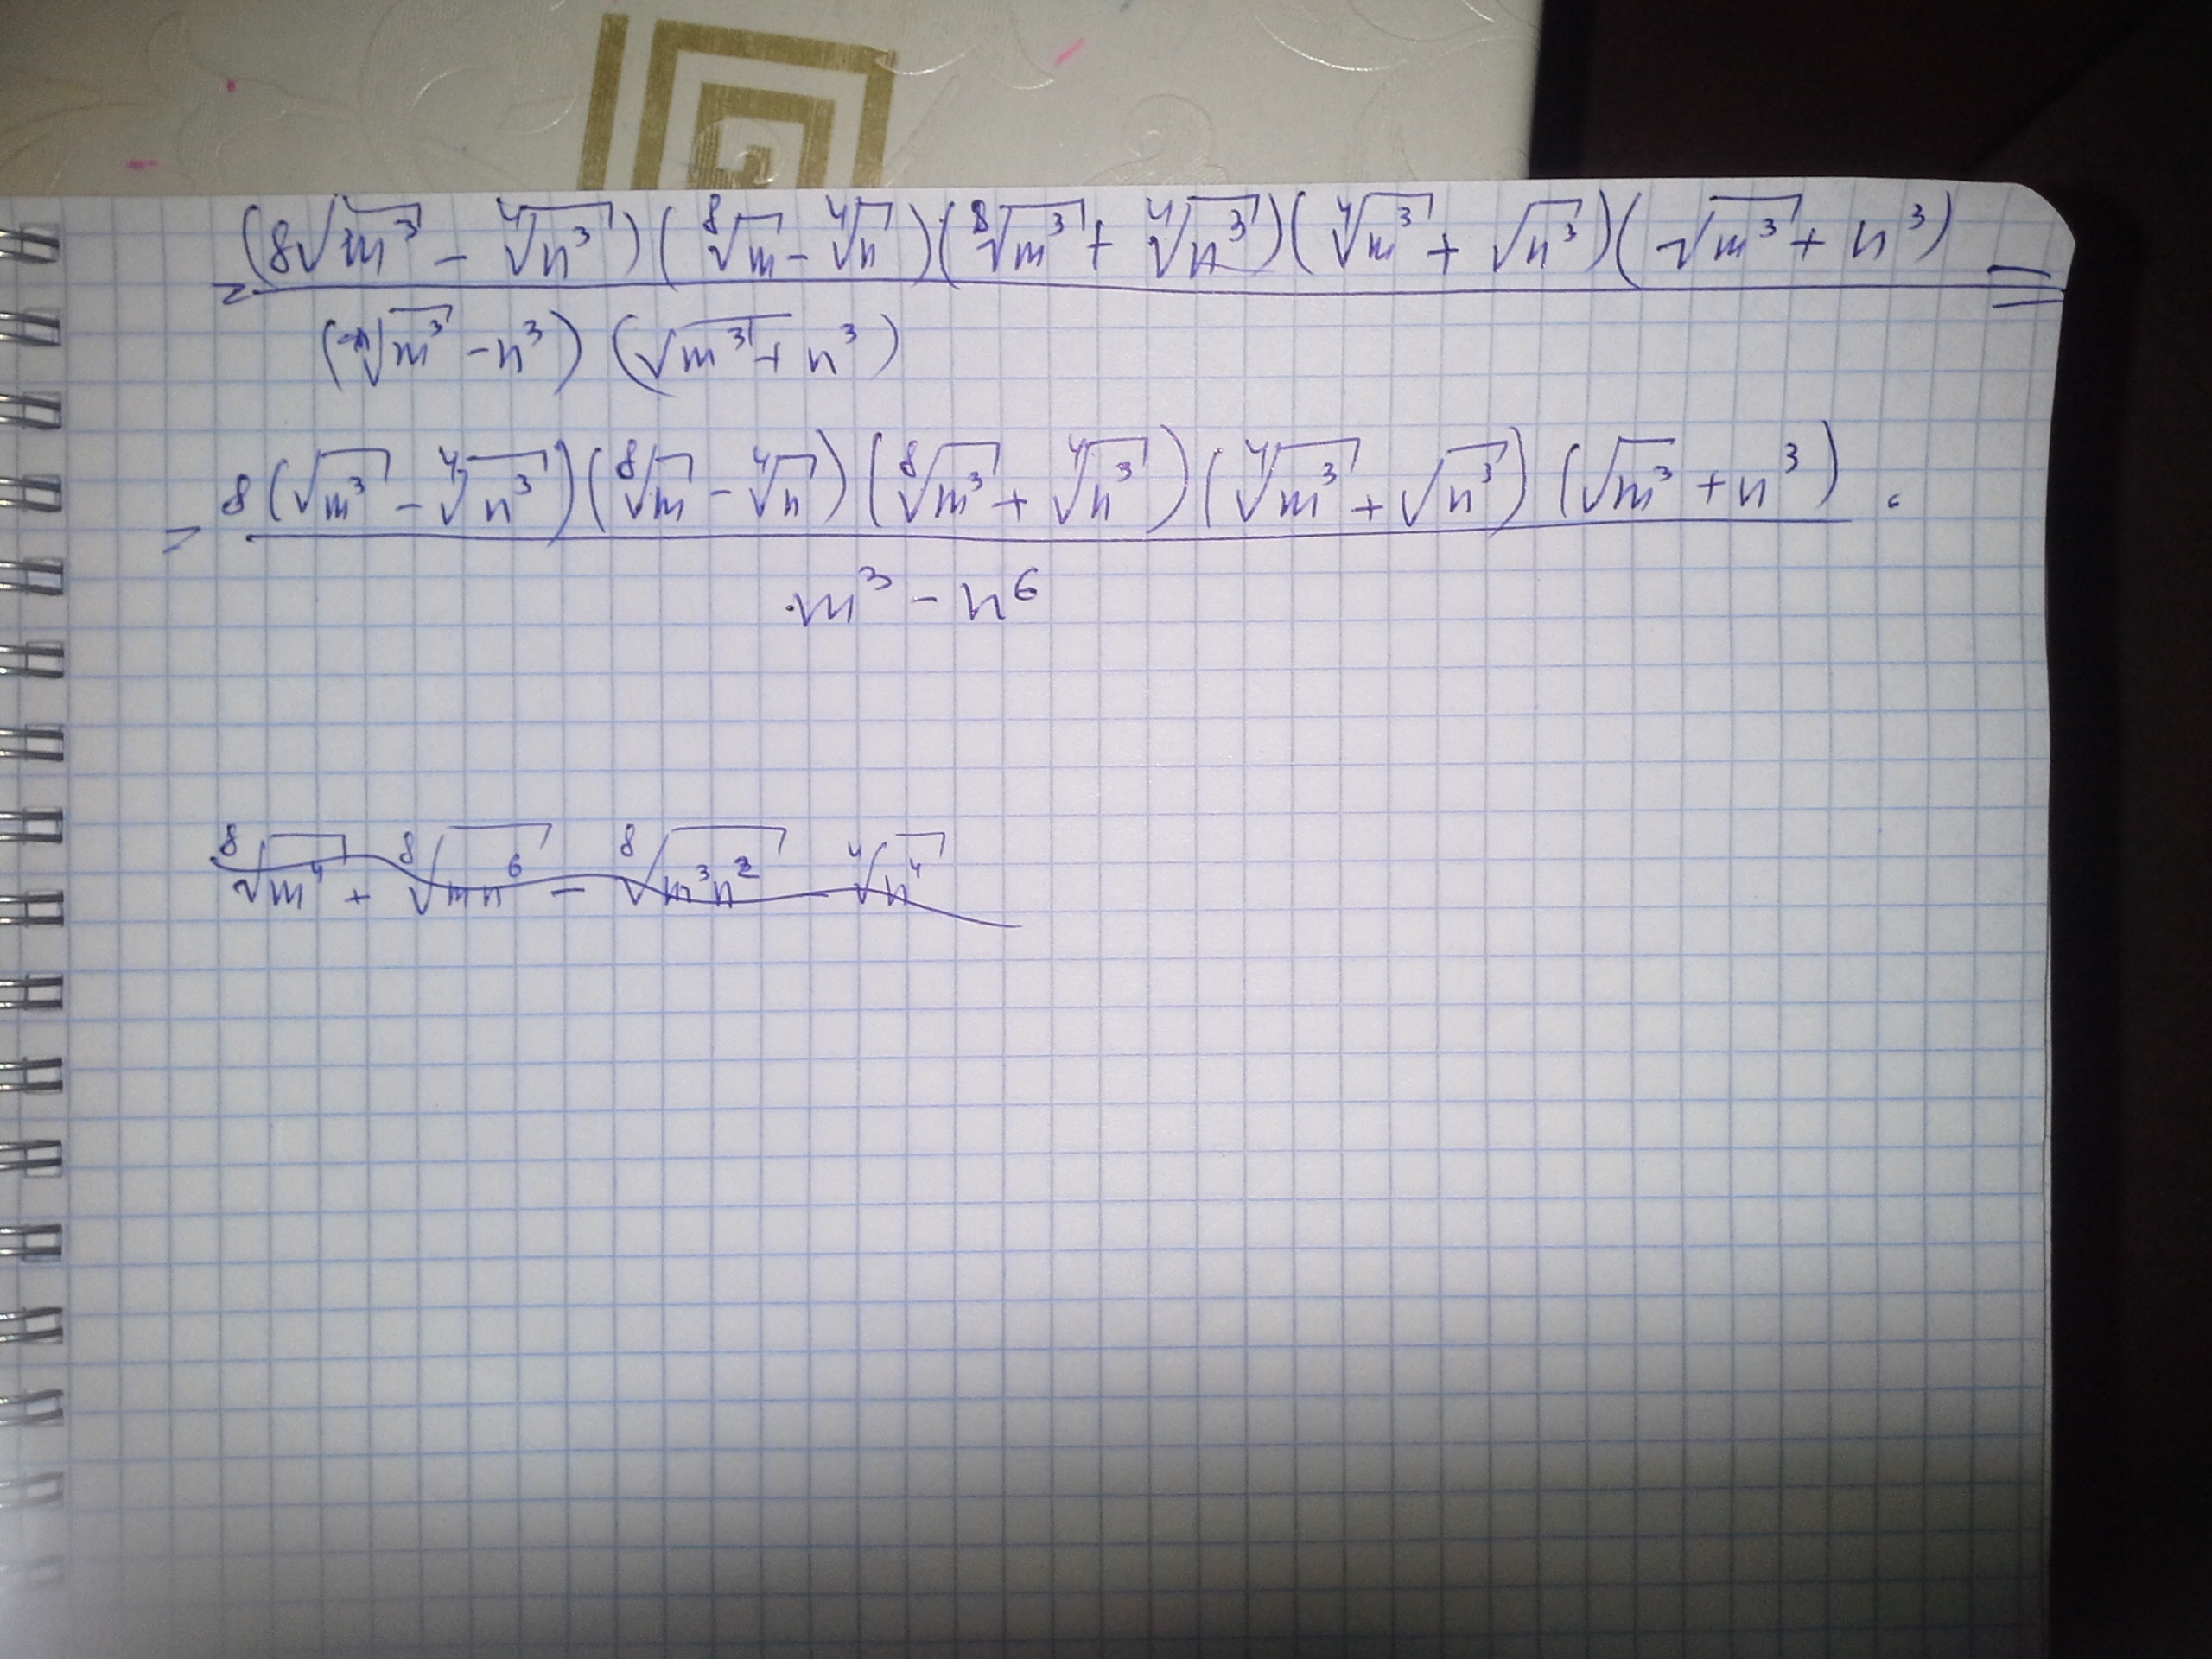 = (8√m³ − ⁴√n³)(⁸√m − ⁴√n)(⁸√m³ + ⁴√n³)(⁴√m³ + √n³)(√m³ + n³) =
(√m³ − n³)(√m³ + n³)
= 8(√m³ − ⁴√n³)(⁸√m − ⁴√n)(⁸√m³ + ⁴√n³)(⁴√m³ + √n³)(√m³ + n³) .
m³ − n⁶
⁸√m⁴ + ⁸√mn⁶ − ⁸√m³n² − ⁴√n⁴